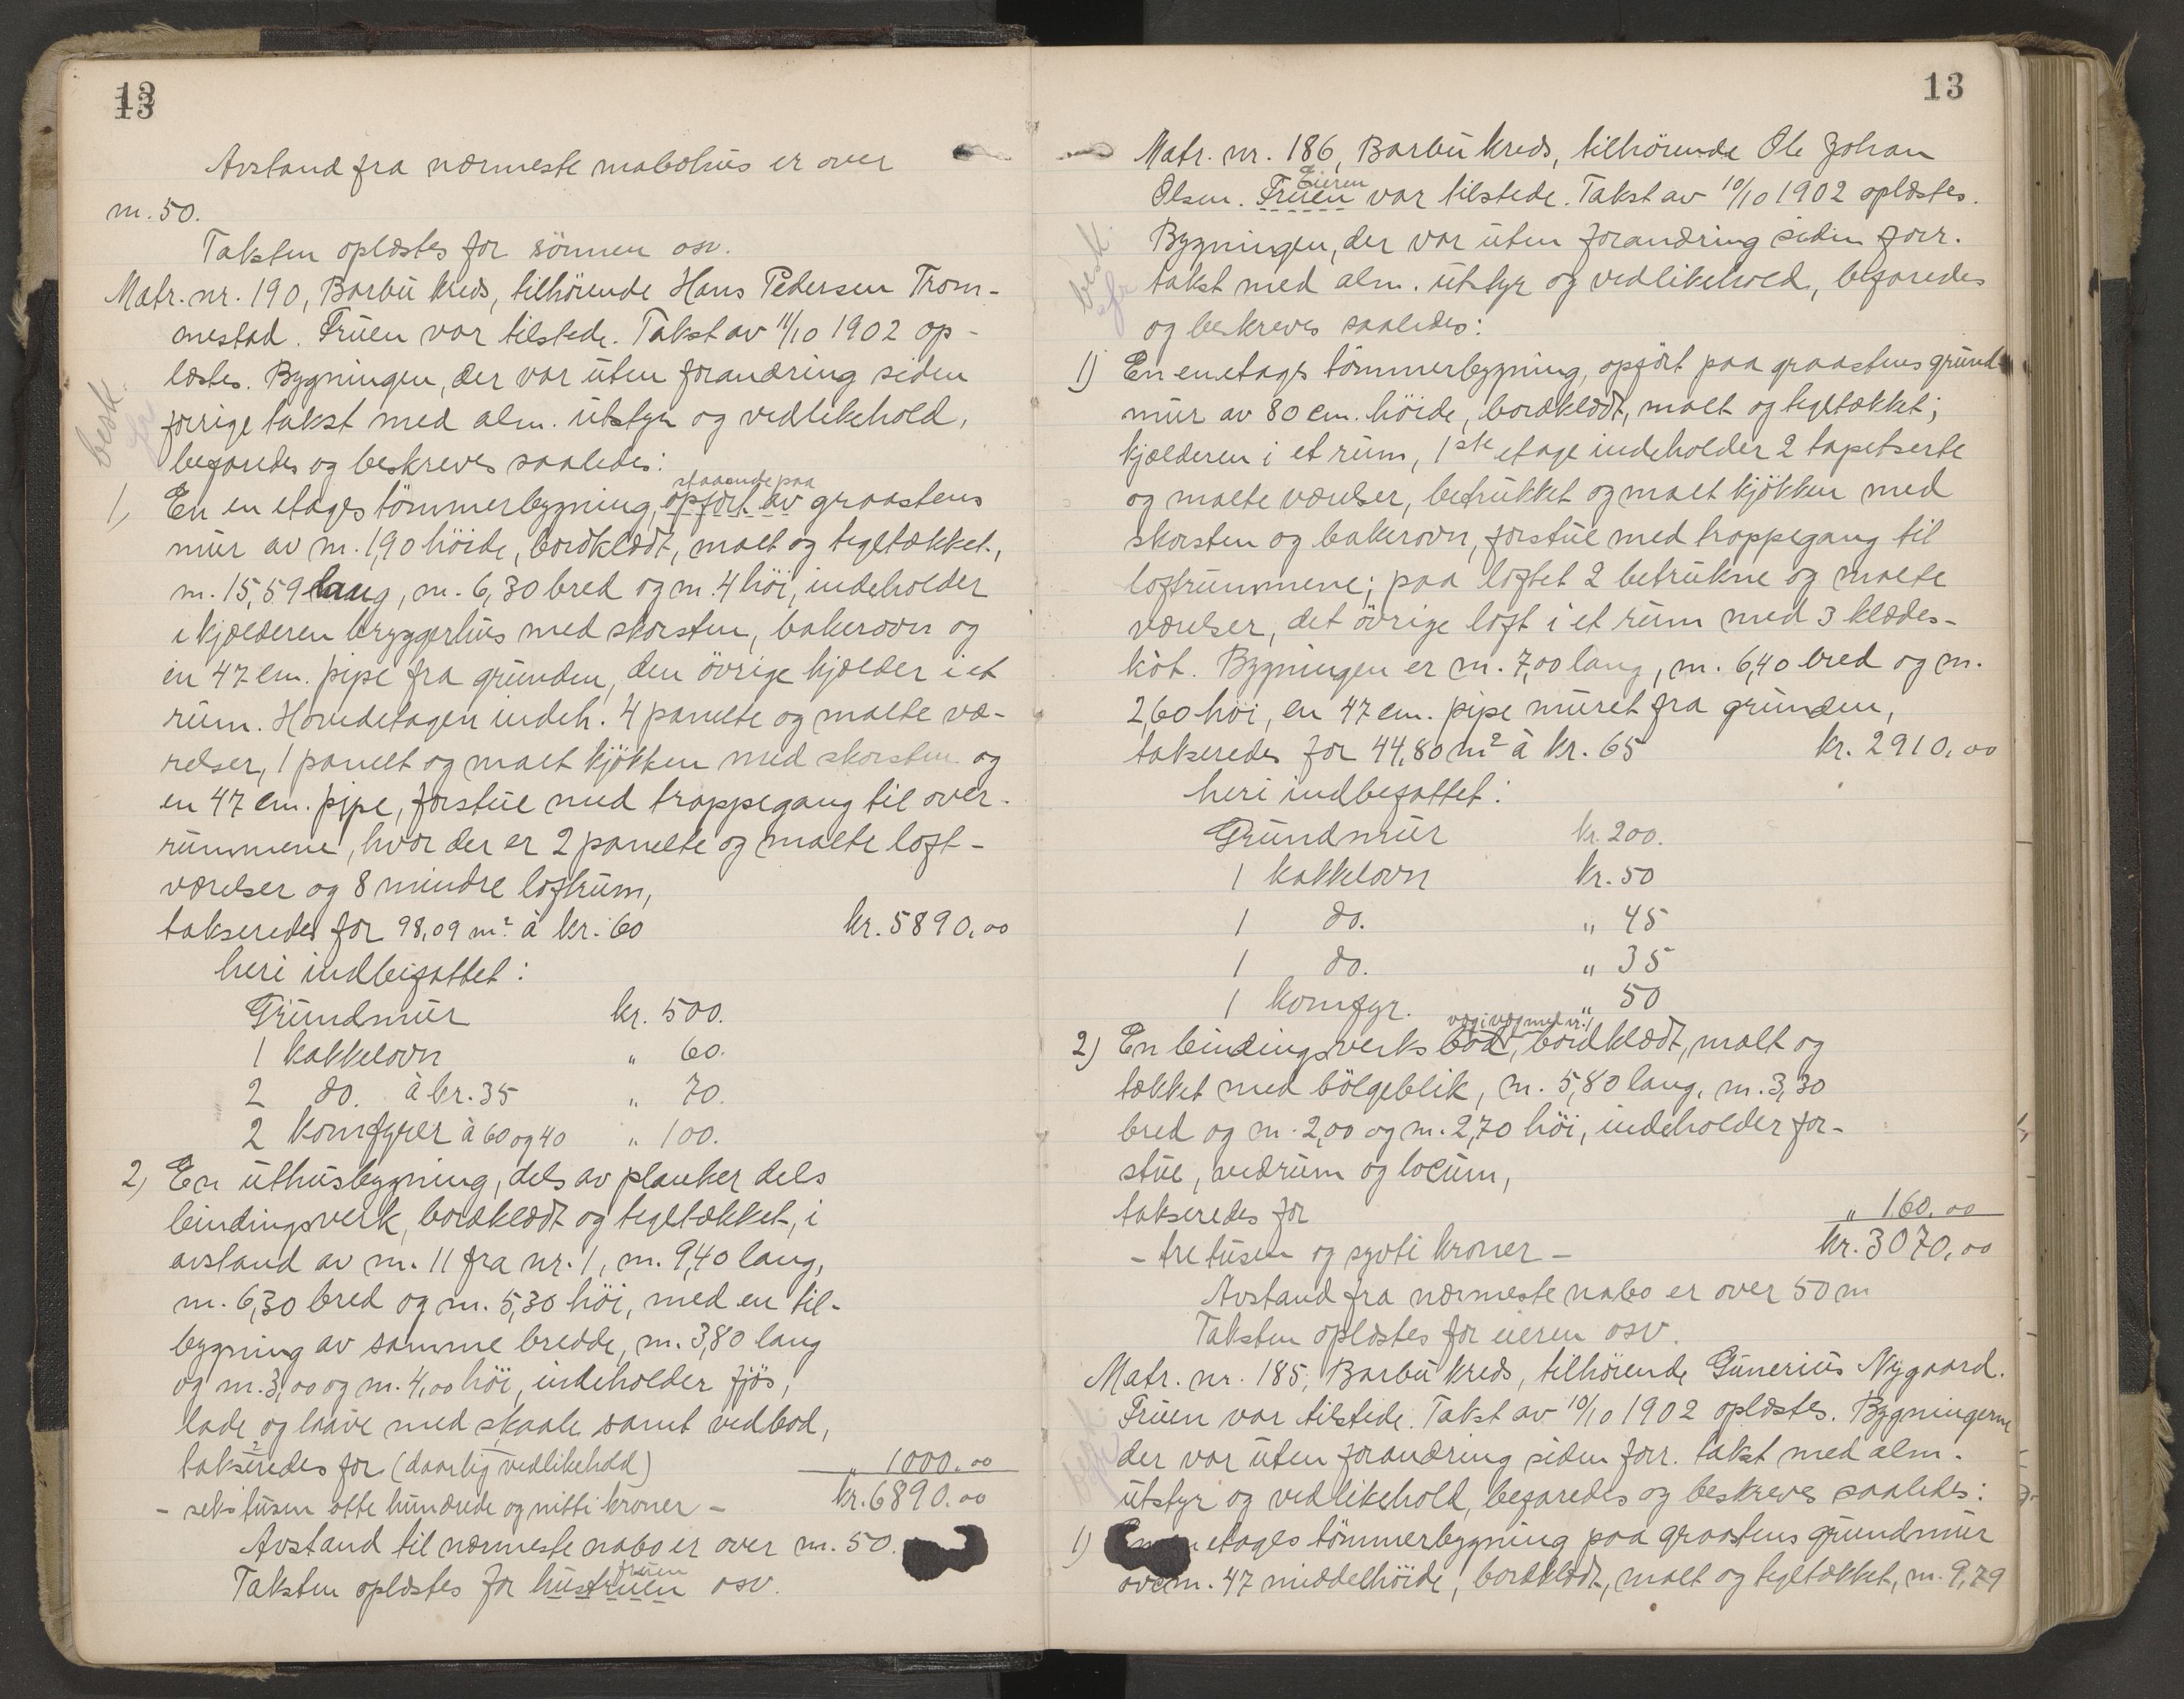 13
Avstand fra nærmeste nabohus er over
m. 50.
Taksten oplæstes for sönnen osv.
Matr. nr. 190, Barbu kreds, tilhörende Hans Pedersen Trom-
mestad. Fruen var tilstede. Takst av 11/10 1902 op-
læstes. Bygningen, der var uten forandring siden
forrige takst med alm. utstyr og vedlikehold,
besk.
befaredes og beskreves saaledes:
staaende paa
1, En en etages tömmerbygning, opfört av graastens
mur av m. 1,90 höide, bordklædt, malt og tegltækket,
m. 15,59 lang, m. 6,30 bred og m. 4 höi, indeholder
i kjælderen bryggerhus med skorsten, bakerovn og
en 47 cm. pipe fra grunden, den övrige kjælder i et
rum. Hovedetagen indeh. 4 panelte og malte væ-
relser, 1 panelt og malt kjökken med skorsten og
en 47 cm. pipe, forstue med trappegang til over-
rummene, hvor der er 2 panelte og malte loft-
værelser og 8 mindre loftrum,
takseredes for 98,09 m² à kr. 60 kr. 5890,00
heri indbefattet:
Grundmur kr. 500.
1 kakkelovn " 60.
2 do. à kr. 35 " 70.
2 komfyrer à 60 og 40 " 100.
2, En uthusbygning, dels av planker dels
bindingsverk, bordklædt og tegltækket, i
avstand av m. 11 fra nr. 1, m. 9,40 lang,
m. 6,30 bred og m. 5,30 höi, med en til-
bygning av samme bredde, m. 3,80 lang
og m. 3,00 og m. 4,00 höi, indeholder fjös,
lade og laave med skaale samt vedbod,
takseredes for (daarlig vedlikehold) " 1000.00
- seks tusen otte hundrede og nitti kroner - kr. 6890.00
Avstand til nærmeste nabo er over m. 50.
fruen
Taksten oplæstes for hustruen osv.
13
Matr. nr. 186, Barbu kreds, tilhörende Ole Johan
Eieren
Olsen. Fruen var tilstede. Takst av 10/10 1902 oplæstes.
besk.
Bygningen, der var uten forandring siden forr.
takst med alm. utstyr og vedlikehold, befaredes
og beskreves saaledes:
1) En enetages tömmerbygning, opfört paa graastens grund-
mur av 80 cm. höide, bordklædt, malt og tegltækket;
kjælderen i et rum, 1ste etage indeholder 2 tapetserte
og malte værelser, betrukket og malt kjökken med
skorsten og bakerovn, forstue med trappegang til
loftrummene; paa loftet 2 betrukne og malte
værelser, det övrige loft i et rum med 3 klædes-
kot. Bygningen er m. 7,00 lang, m. 6,40 bred og m.
2,60 höi, en 47 cm. pipe muret fra grunden,
takseredes for 44,80 m² à kr. 65 kr. 2910,00
heri indbefattet:
Grundmur kr. 200.
1 kakkelovn kr. 50
1 do. " 45
1 do. " 35
1 komfyr. " 50
væg i væg med nr. 1
2) En bindingsverks bod, bordklædt, malt og
tækket med bölgeblik, m. 5,80 lang, m. 3,30
bred og m. 2,00 og m. 2,70 höi, indeholder for-
stue, vedrum og locum,
takseredes for " 160.00
- tre tusen og sytti kroner - kr. 3070,00
Avstand fra nærmeste nabo er over 50 m
Taksten oplæstes for eieren osv.
Matr. nr. 185, Barbu kreds, tilhörende Gunerius Nygaard.
Fruen var tilstede. Takst av 10/10 1902 oplæstes. Bygningerne
der var uten forandring siden forr. takst med alm.
utstyr og vedlikehold, befaredes og beskreves saaledes:
1) etages tömmerbygning paa graastens grundmur
m. 47 middelhöide, bordklædt, malt og tegltækket, m. 9,79